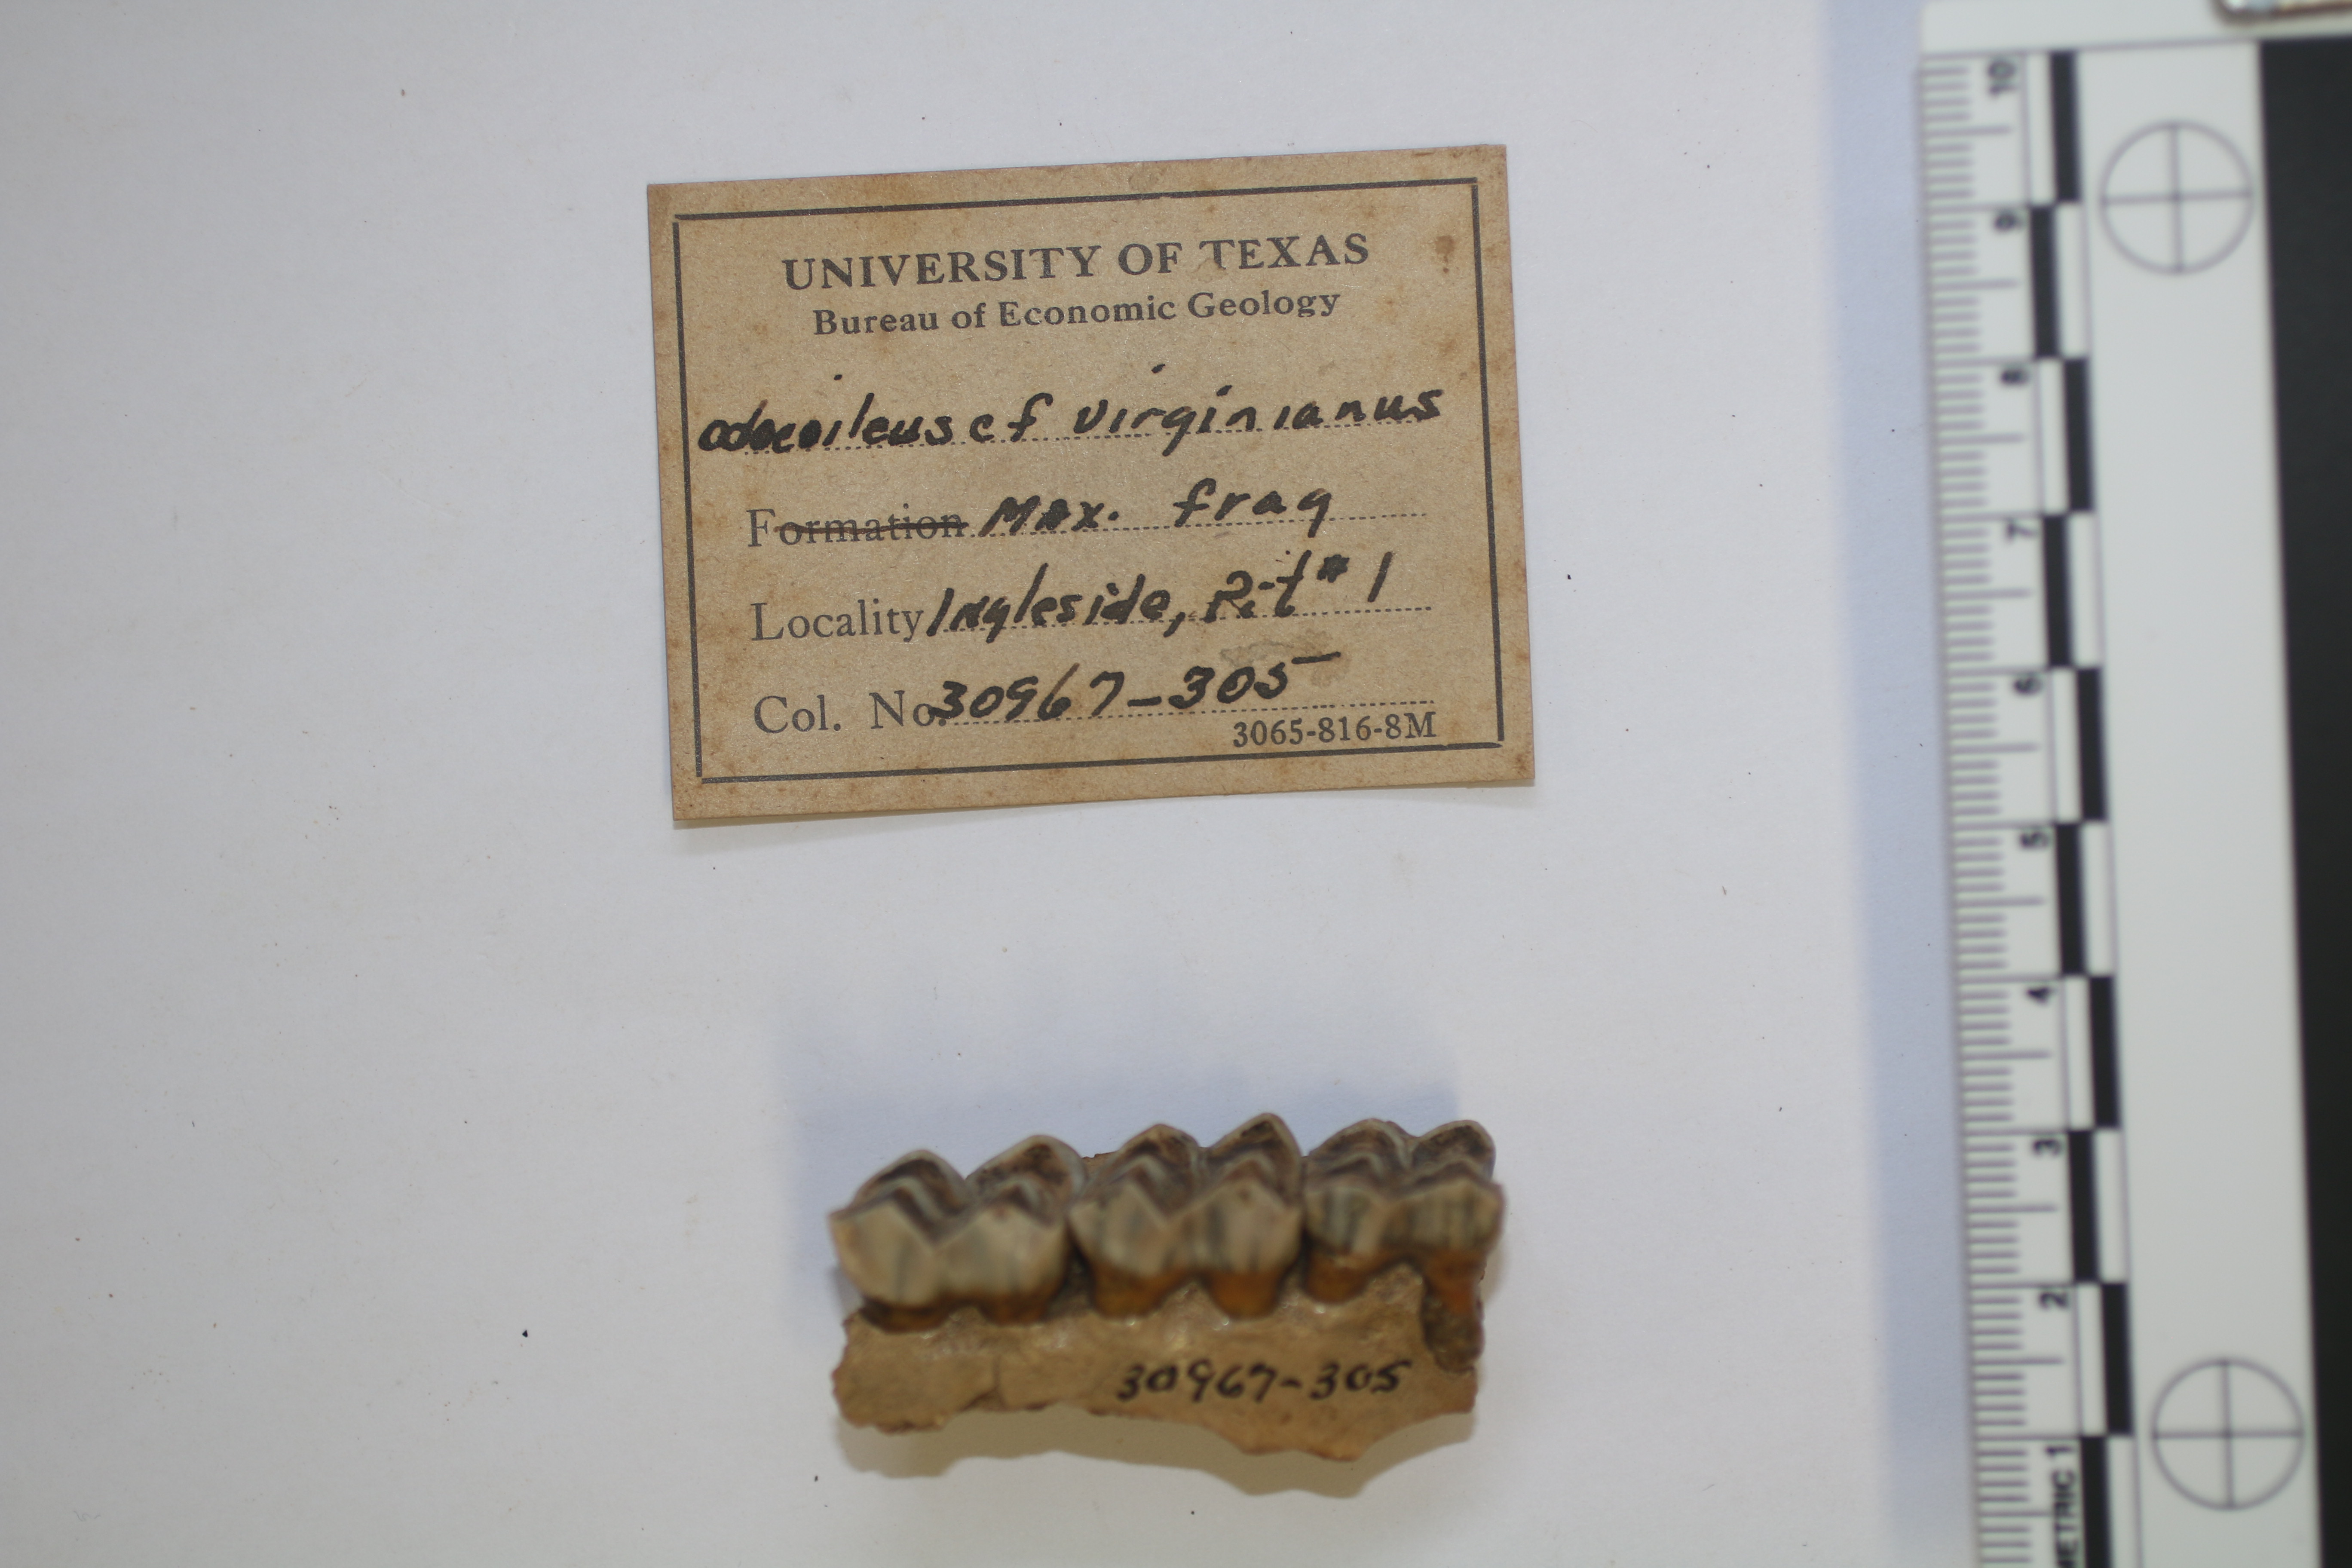 UNIVERSITY OF TEXAS
Bureau of Economic Geology
Odocoileus cf virginianus
Formation Max. frag
Locality Ingleside, Pit #1
Col. No. 30967-305
3065-816-8M
30967-305
METRIC 1 2 3 4 5 6 7 8 9 10